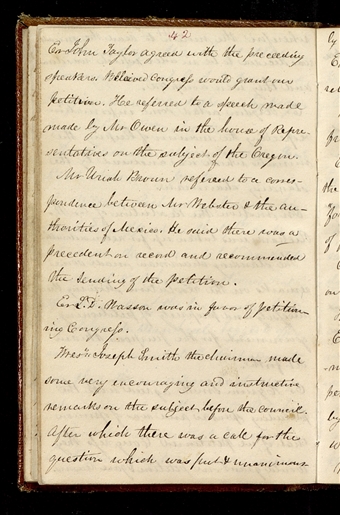 42
Er John Taylor agreed with the preceeding
speakers. Believed Congress would grant our
Petition. He referred to a speech made
made by Mr Owen in the house of Repre-
sentatives on the subject of the Oregon.
Mr Uriah Brown referred to a corres-
pondence between Mr Webster & the au-
thorities of Mexico. He said there was a
precedent on record and recommended
the sending of the Petition.
Er L. D. Wasson was in favor of Petition-
ing Congress.
Joseph Smith the chairman made
some very encouraging and instructive
remarks on the subject before the council.
After which there was a call for the
question which was put & unanimous